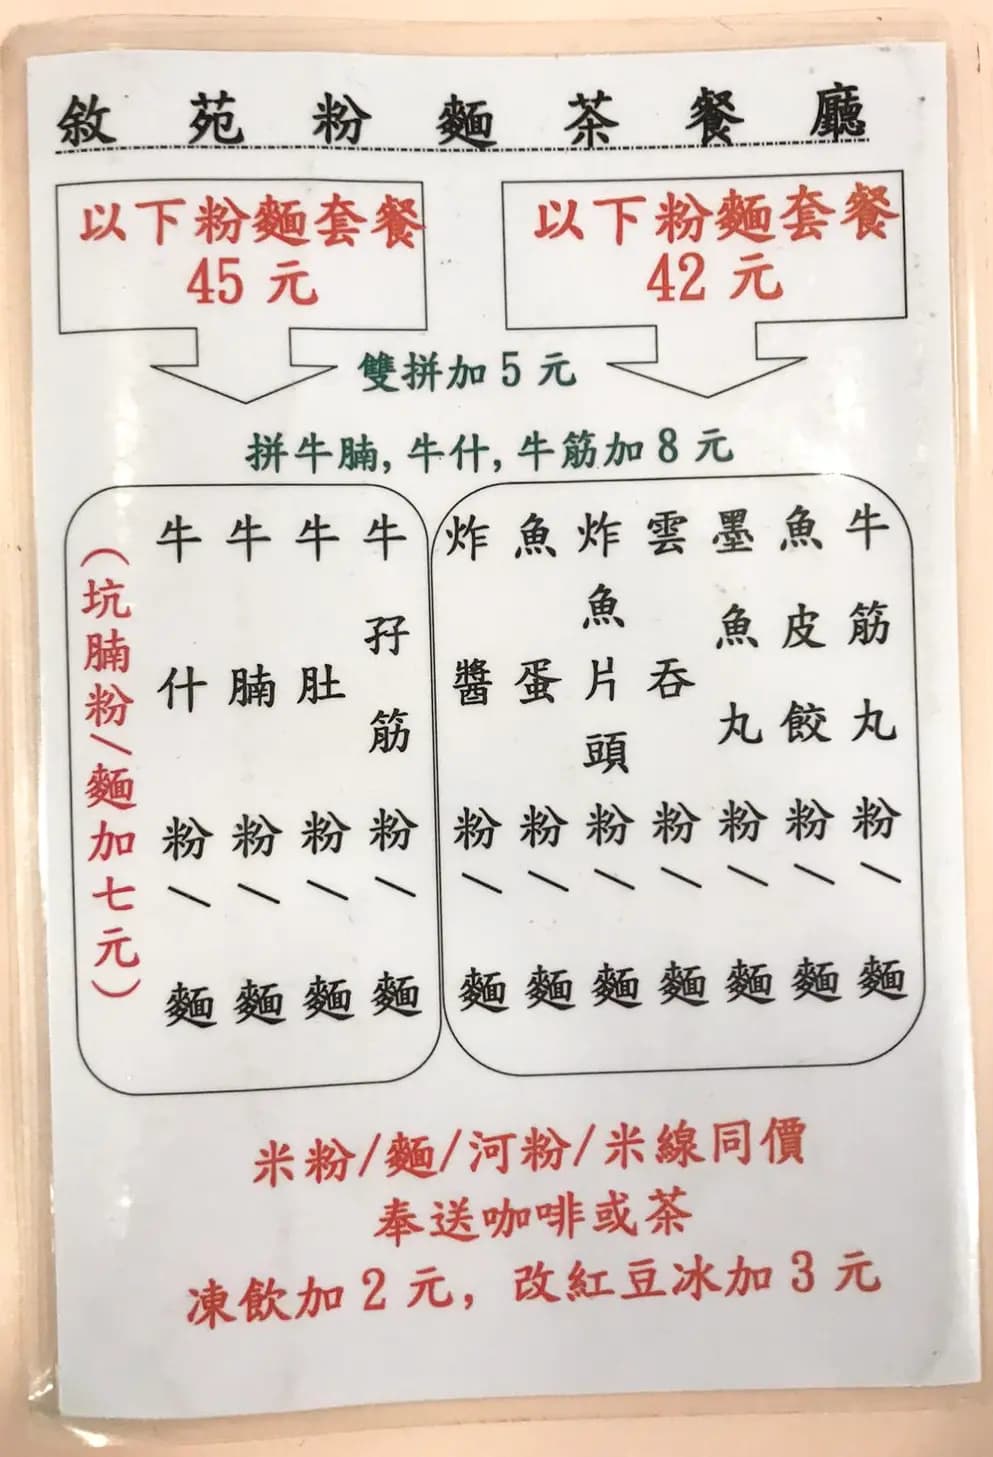 敘苑粉麵茶餐廳
以下粉麵套餐
45 元
以下粉麵套餐
42 元
雙拼加 5 元
拼牛腩, 牛什, 牛筋加 8 元
牛筋丸粉/麵
魚皮餃粉/麵
墨魚丸粉/麵
雲吞粉/麵
炸魚片頭粉/麵
魚蛋粉/麵
炸醬粉/麵
牛孖筋粉/麵
牛肚粉/麵
牛腩粉/麵
牛什粉/麵
(坑腩粉/麵加七元)
米粉/麵/河粉/米線同價
奉送咖啡或茶
凍飲加 2 元, 改紅豆冰加 3 元